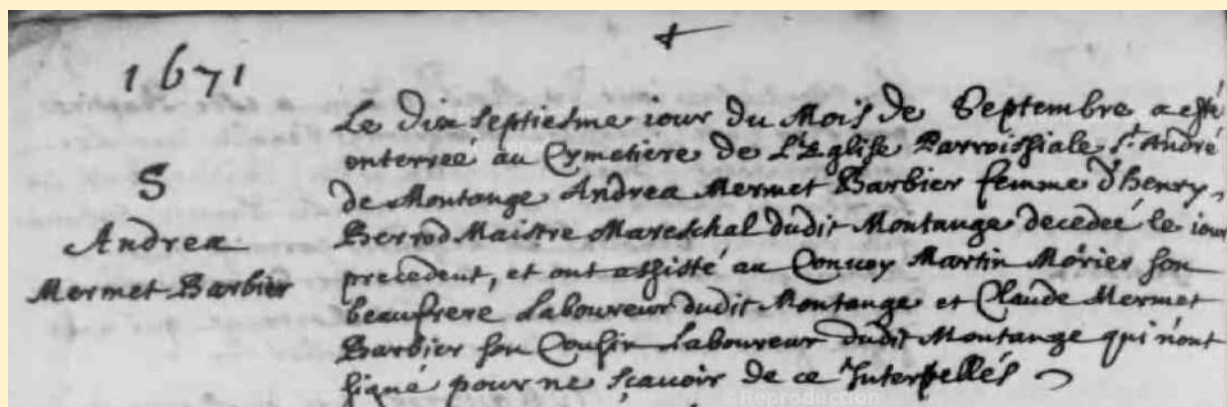 1671
S
Andrea
Mermet-Barbier
Le dix septiesme iour du Mois de Septembre a esté
enterreé au Cymetiere de L'Eglise Parroissiale St. André
de Montange Andrea Mermet Barbier femme d'henry
Berrod Maistre Mareschal dudit Montange decedeé le iour
precedent, et ont assisté au Conuoy Martin Mórier son
beaufrere Laboureur dudit Montange et Claude Mermet
Barbier son Cousin Laboureur dudit Montange qui n'ont
signé pour ne sçauoir de ce Interpellés
©Reproduction